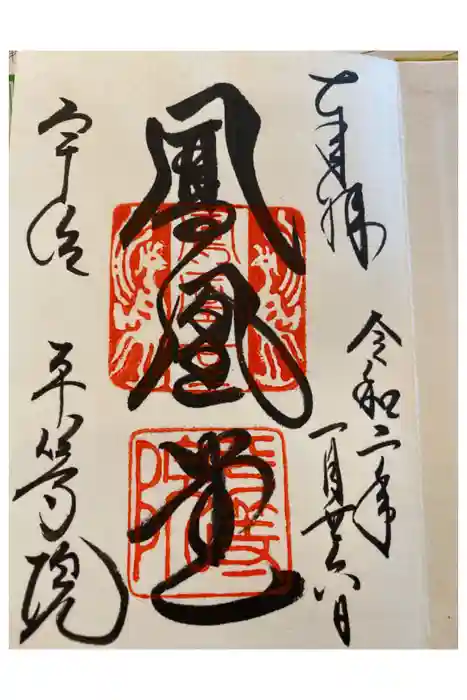 奉拝
令和二年
一月廿六日
鳳凰堂
宇治
平等院